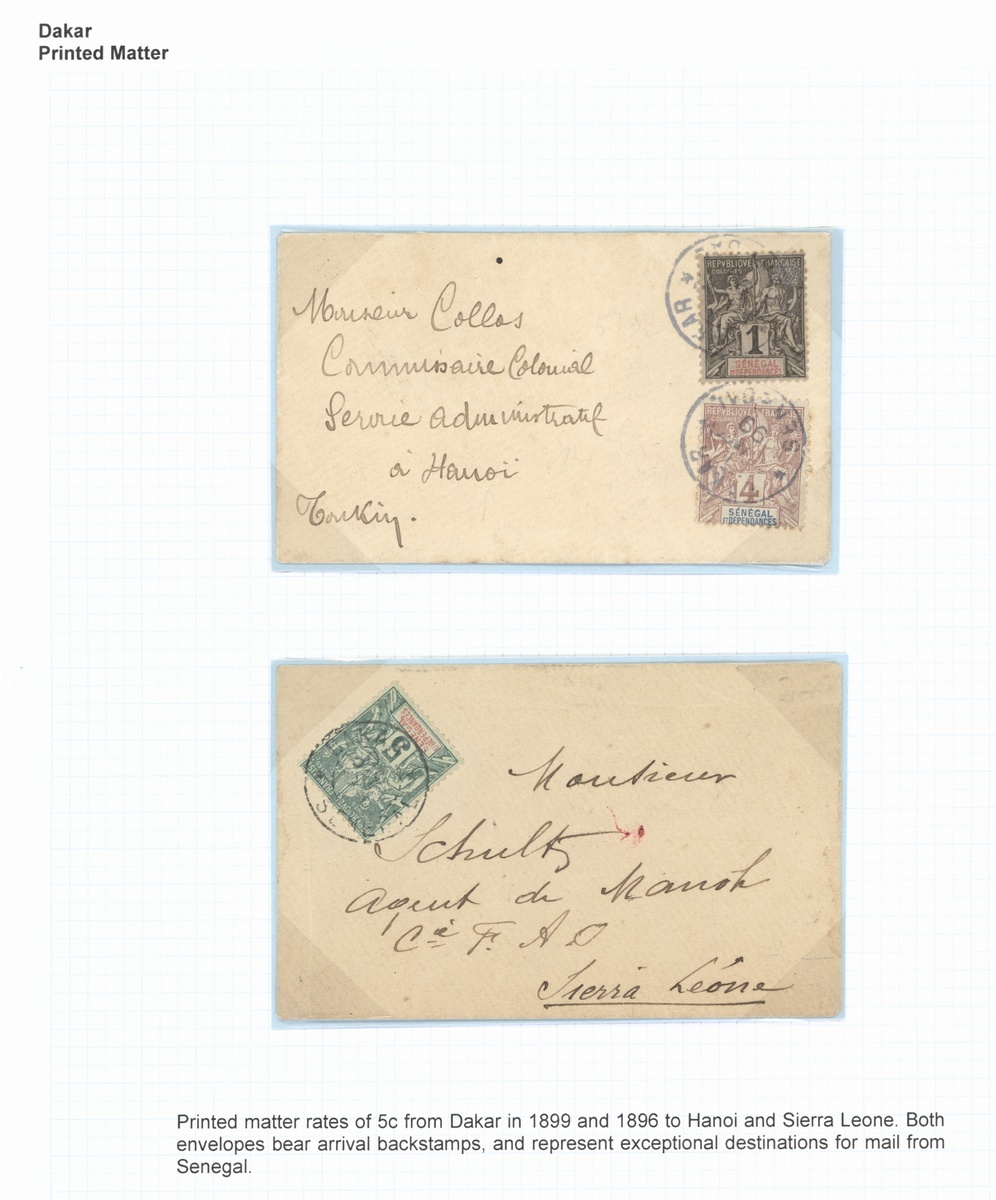 Dakar
Printed Matter
REPVBLIQVE FRANÇAISE
COLONIES
1
SÉNÉGAL
ET DÉPENDANCES
Monsieur Collos
Commissaire Colonial
Service Administratif
à Hanoï
Tonkin.
REPVBLIQVE FRANÇAISE
99
4
SÉNÉGAL
ET DÉPENDANCES
SÉNÉGAL
ET DÉPENDANCES
5
Monsieur
Schultz
Agent de Manoh
Cie F. A O
Sierra Léone
Printed matter rates of 5c from Dakar in 1899 and 1896 to Hanoi and Sierra Leone. Both
envelopes bear arrival backstamps, and represent exceptional destinations for mail from
Senegal.